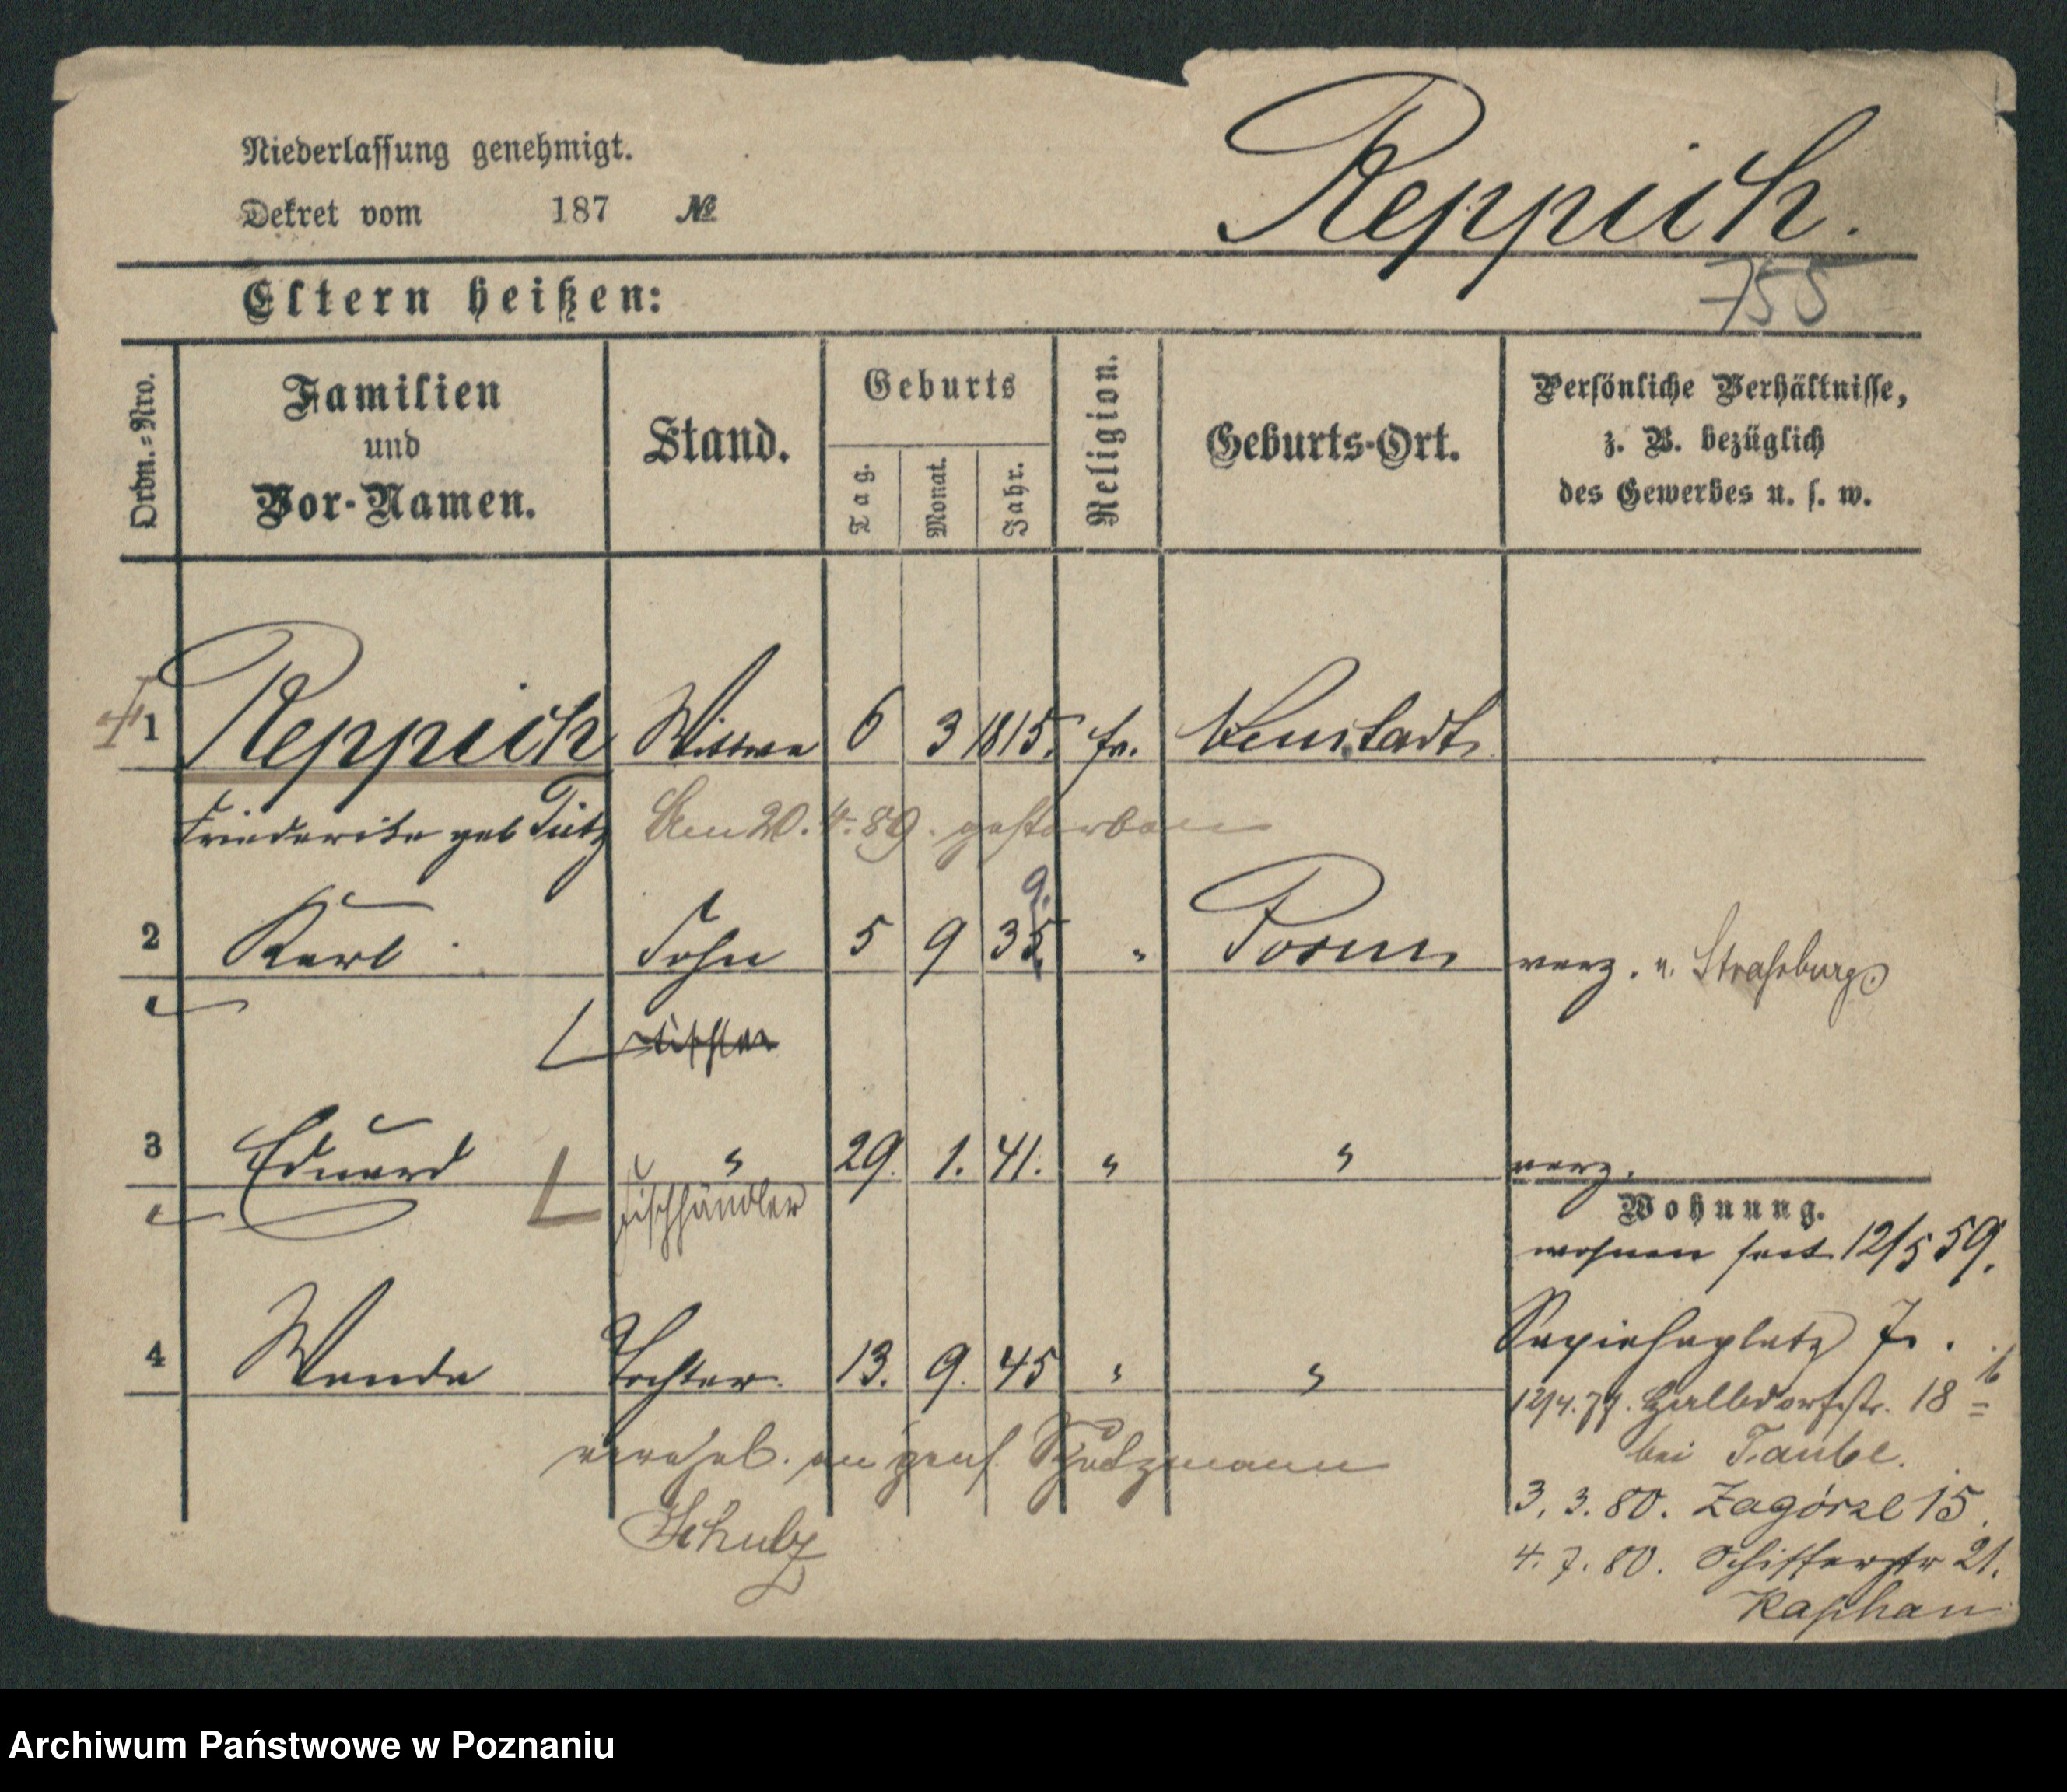 Niederlassung genehmigt.
Dekret vom 187 №
Reppich.
755
Eltern heißen:
Ordn.=Nro.
Familien
und
Vor-Namen.
Stand.
Geburts
Tag.
Monat.
Jahr.
Religion.
Geburts-Ort.
Persönliche Verhältnisse,
z. B. bezüglich
des Gewerbes u. s. w.
1 Reppich Wittwe 6 3 1815. Neustadt
Friederike geb Tietz Am 20.4.89. gestorben
2 Karl Sohn 5 9 35 9. " Posen verz. n. Straßburg
Tischler
3 Eduard " 29. 1. 41. " " verz.
Fischhändler
Wohnung.
wohnen seit 12/5 59.
4 Wanda Tochter. 13. 9. 45 " "
Sapiehaplatz 7.
12/4.77. Halbdorfstr. 18 b
verehel. an
bei Taube.
3. 3. 80. Zagórze 15.
Schulz
4. 7. 80. Schifferstr 21.
Kaphan
Archiwum Państwowe w Poznaniu